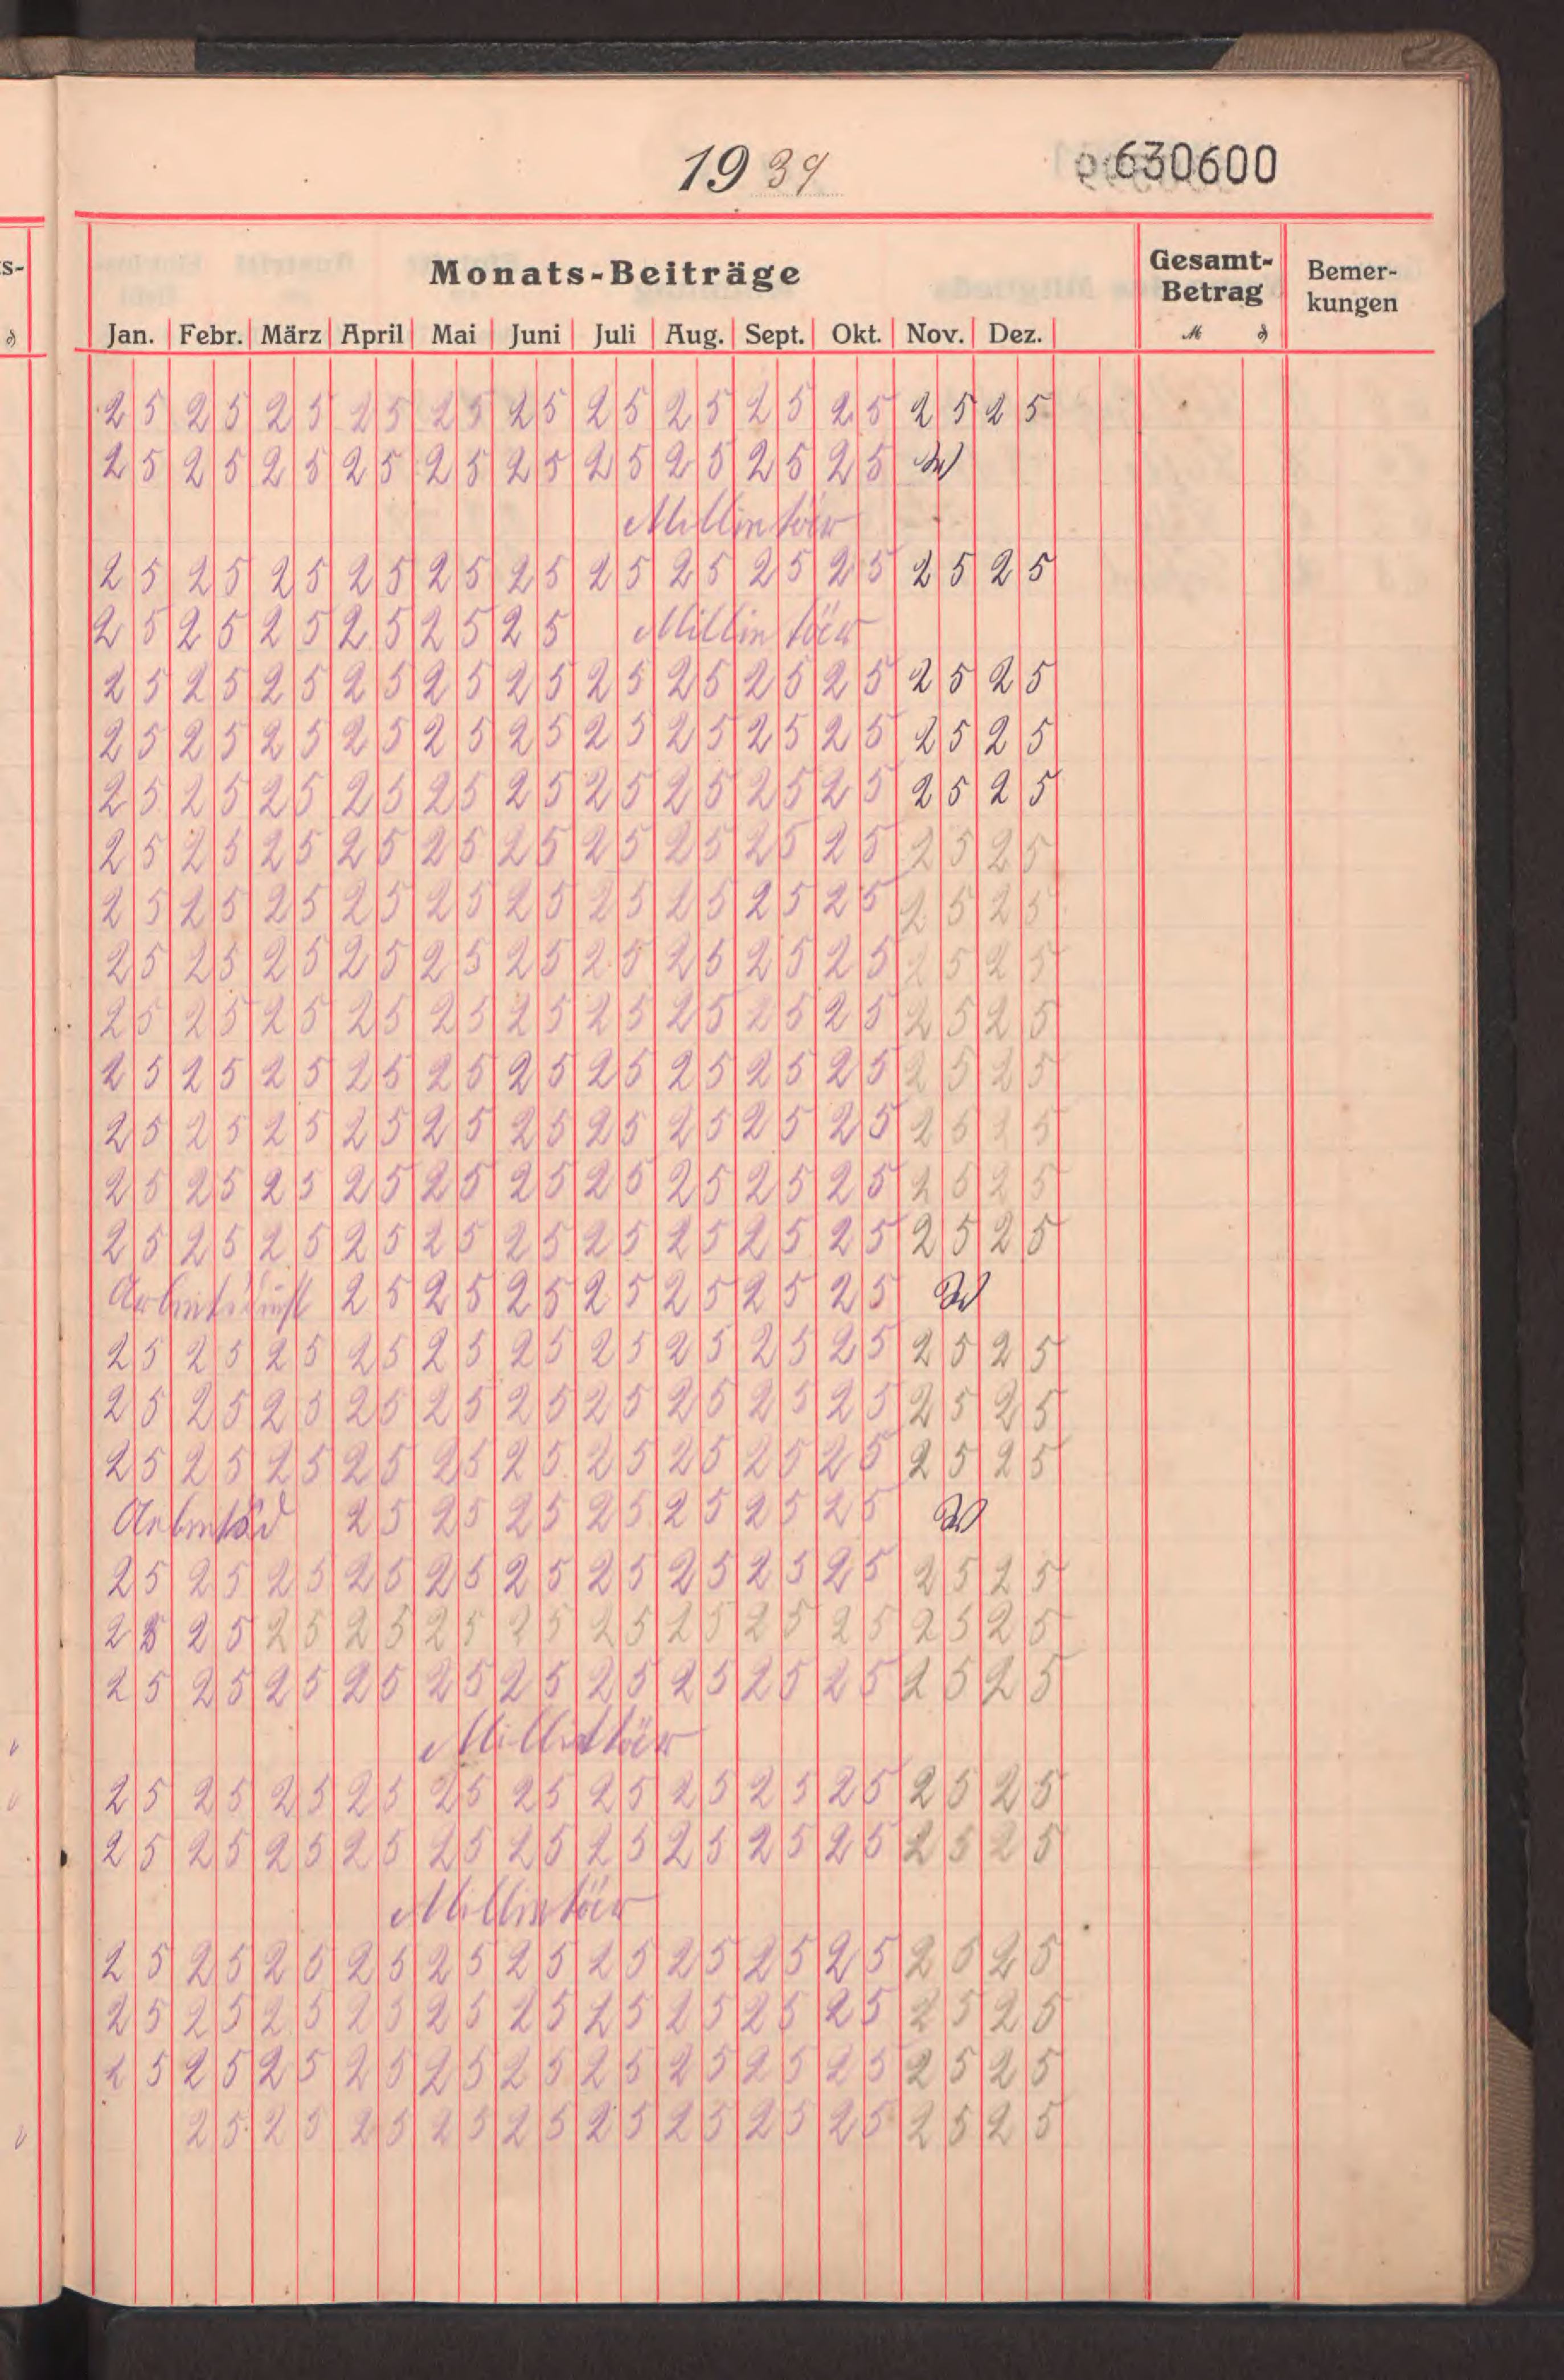 1939
630600
Monats-Beiträge Gesamt-Betrag Bemer-kungen
Jan. Febr. März April Mai Juni Juli Aug. Sept. Okt. Nov. Dez. M ₰
25 25 25 25 25 25 25 25 25 25 25 25
25 25 25 25 25 25 25 25 25 25
Millintöer
25 25 25 25 25 25 25 25 25 25 25 25
25 25 25 25 25 25 Millintöer
25 25 25 25 25 25 25 25 25 25 25 25
25 25 25 25 25 25 25 25 25 25 25 25
25 25 25 25 25 25 25 25 25 25 25 25
25 25 25 25 25 25 25 25 25 25 25 25
25 25 25 25 25 25 25 25 25 25 25 25
25 25 25 25 25 25 25 25 25 25 25 25
25 25 25 25 25 25 25 25 25 25 25 25
25 25 25 25 25 25 25 25 25 25 25 25
25 25 25 25 25 25 25 25 25 25 25 25
25 25 25 25 25 25 25 25 25 25 25 25
25 25 25 25 25 25 25 25 25 25 25 25
Arbeitsdinst 25 25 25 25 25 25 25
25 25 25 25 25 25 25 25 25 25 25 25
25 25 25 25 25 25 25 25 25 25 25 25
25 25 25 25 25 25 25 25 25 25 25 25
Arbeitsd 25 25 25 25 25 25 25
25 25 25 25 25 25 25 25 25 25 25 25
25 25 25 25 25 25 25 25 25 25 25 25
25 25 25 25 25 25 25 25 25 25 25 25
Millintöer
25 25 25 25 25 25 25 25 25 25 25 25
25 25 25 25 25 25 25 25 25 25 25 25
Millintöer
25 25 25 25 25 25 25 25 25 25 25 25
25 25 25 25 25 25 25 25 25 25 25 25
25 25 25 25 25 25 25 25 25 25 25 25
25 25 25 25 25 25 25 25 25 25 25